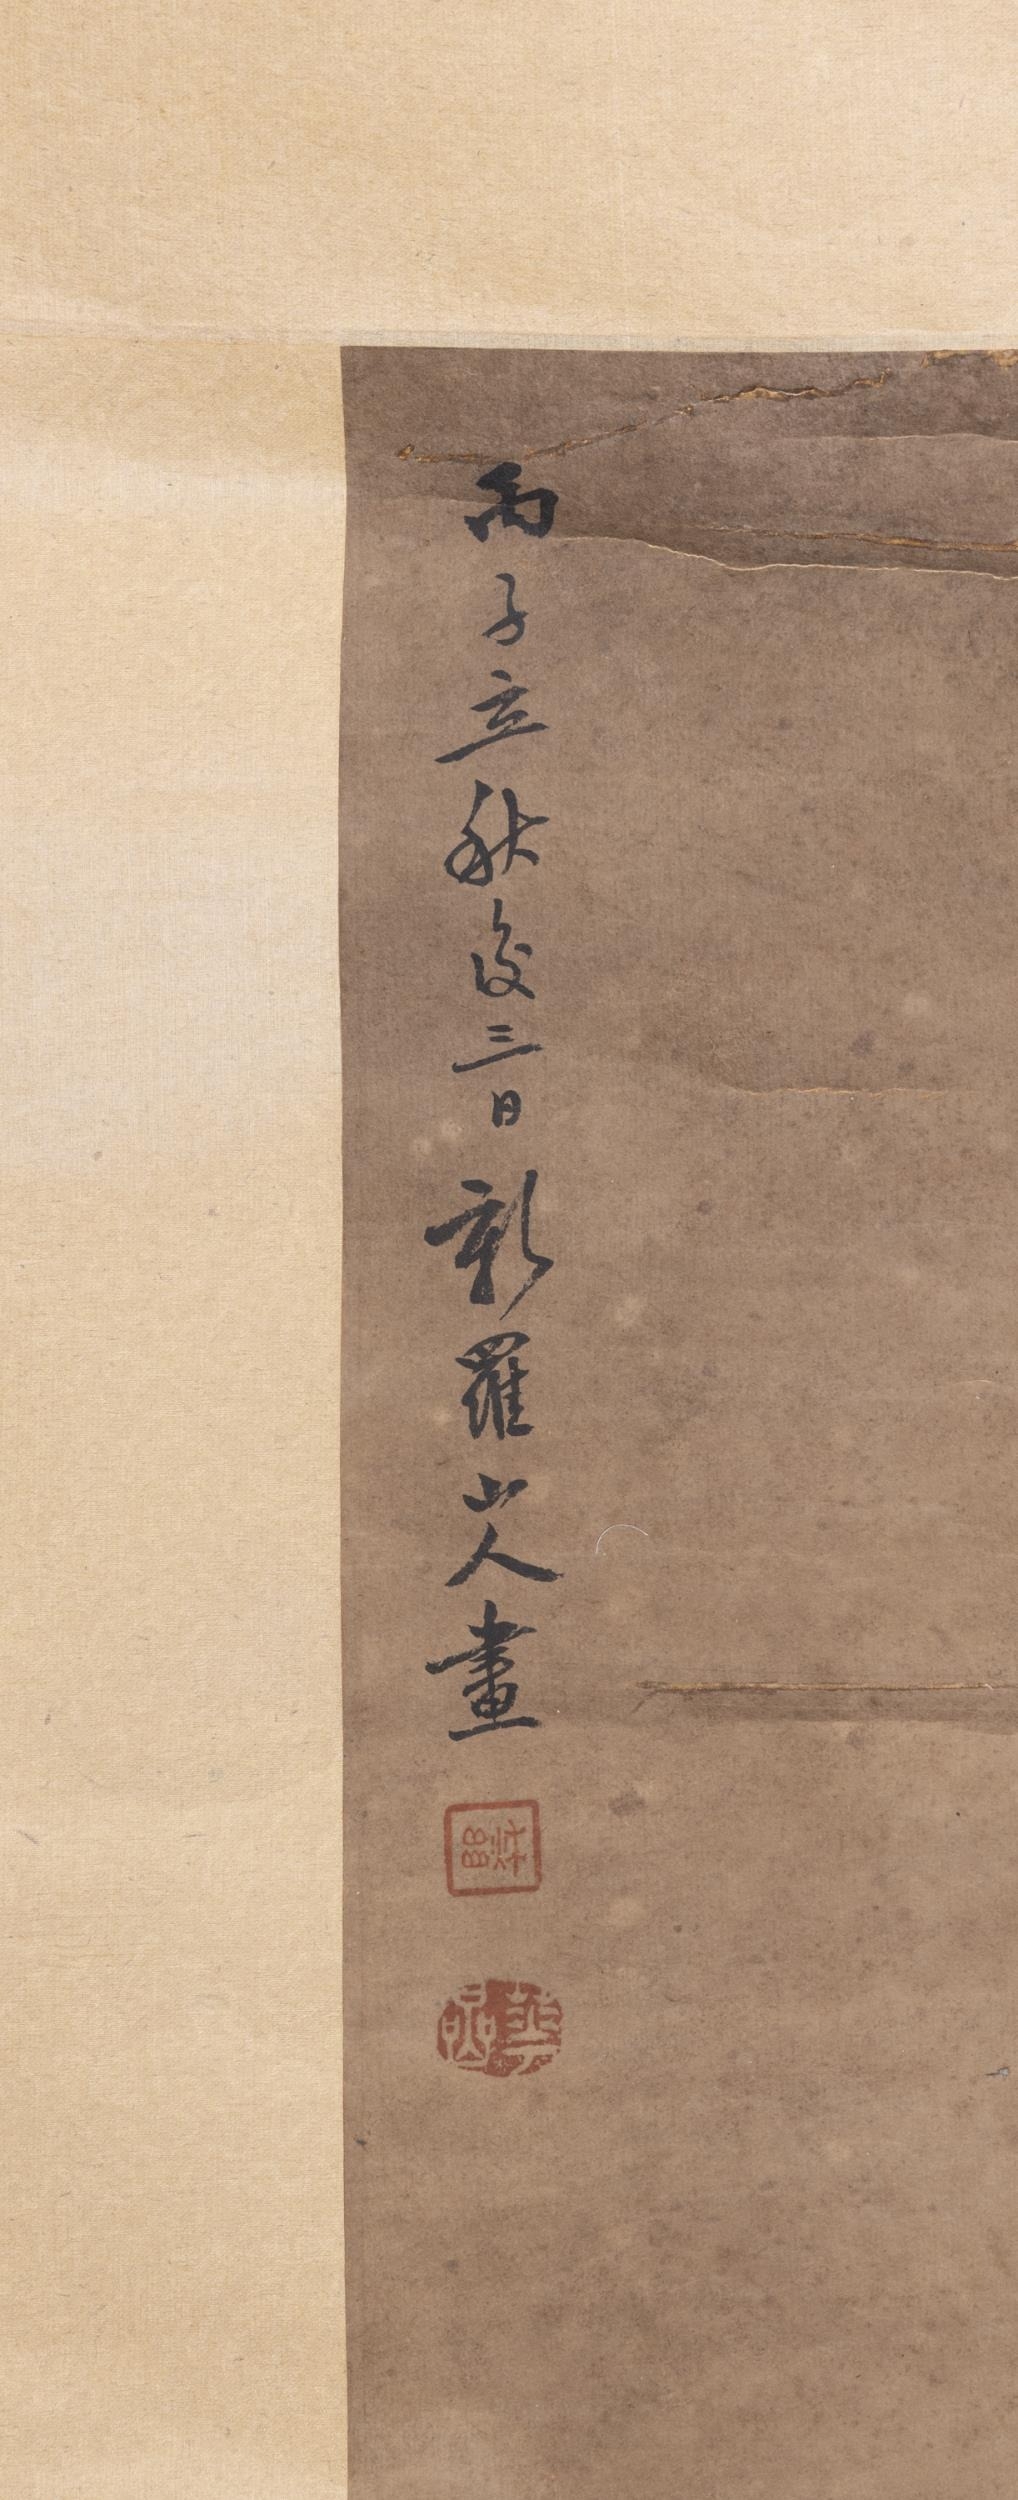 丙子立秋後三日新羅山人畫
華嵒